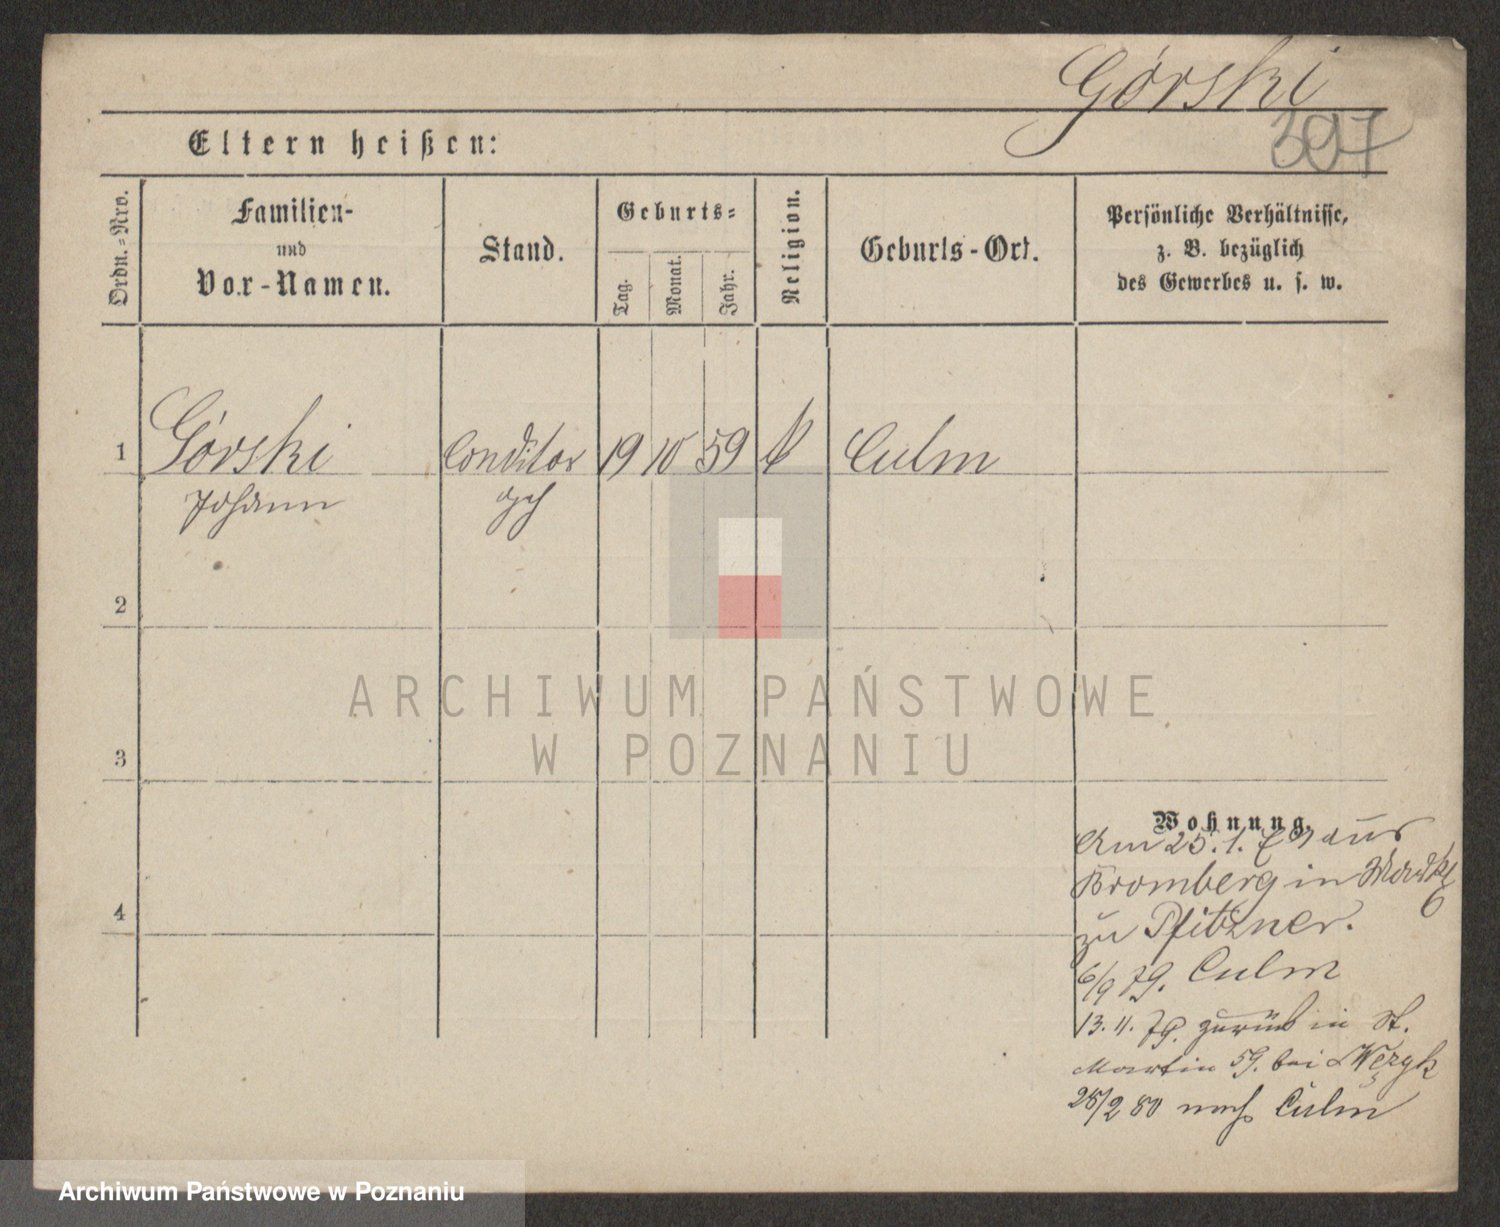 Górski
397
Eltern heißen:
Ordn.-Nro.
Familien-
und
Vor-Namen.
Stand.
Geburts-
Tag.
Monat.
Jahr.
Religion.
Geburts-Ort.
Persönliche Verhältnisse,
z. B. bezüglich
des Gewerbes u. s. w.
1 Górski Conditor 19 10 59 k Culm
Johann
2
ARCHIWUM PAŃSTWOWE
W POZNANIU
3
Wohnung.
Am 25. 1. 79 aus
Bromberg in
6
4
zu Pfitzner.
6/9 79. Culm
13. 11. 79. zurück in St.
Martin 59. bei Węzyk
28/2 80 nach Culm
Archiwum Państwowe w Poznaniu